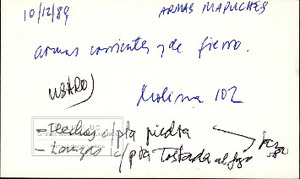 10/12/89 ARMAS MAPUCHES
armas corrientes y de fierro.
USARO
Molina 102
- flechas c/pta piedra
- Lanzas c/pta Tostada al fuego